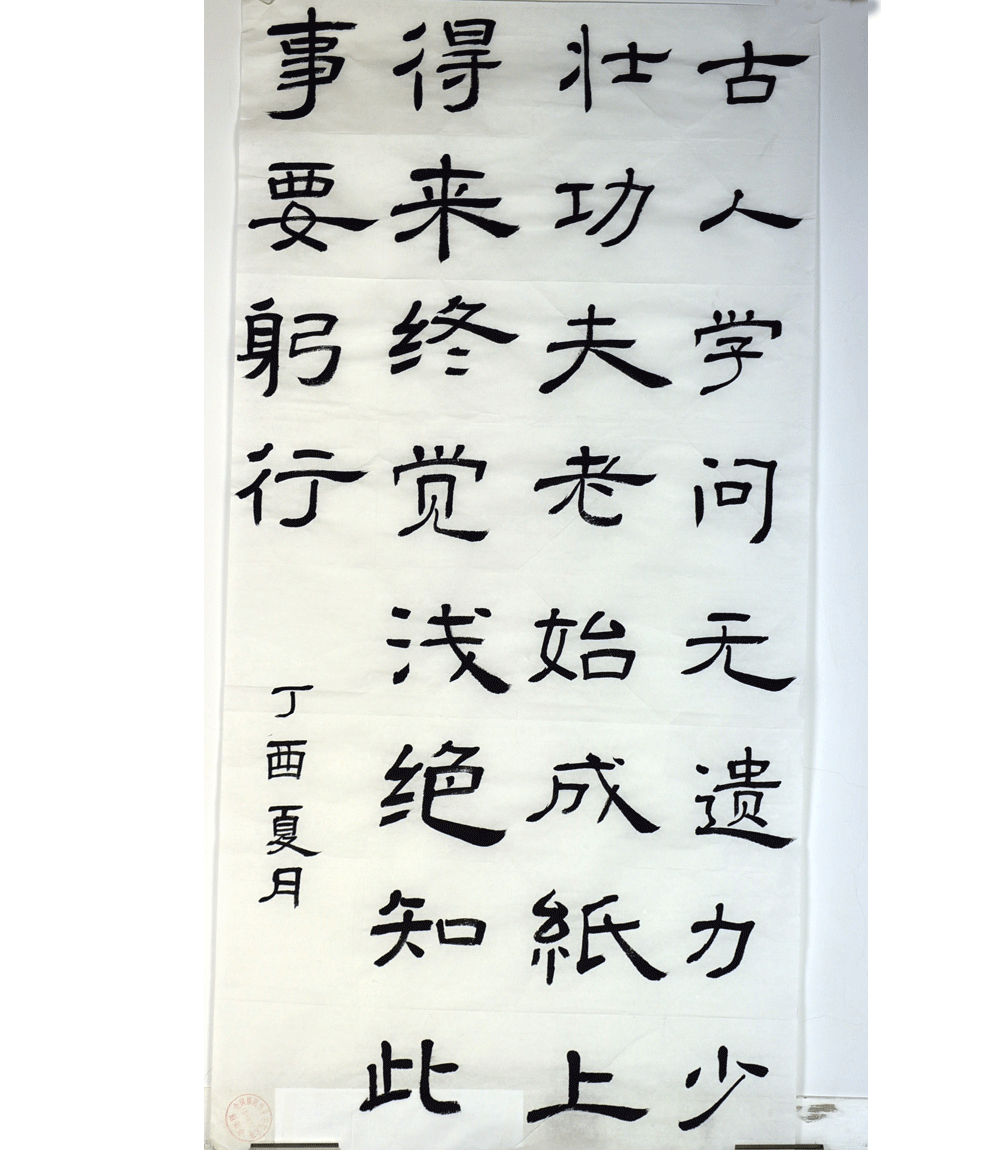 古人学问无遗力少
壮功夫老始成紙上
得来终觉浅绝知此
事要躬行
丁酉夏月